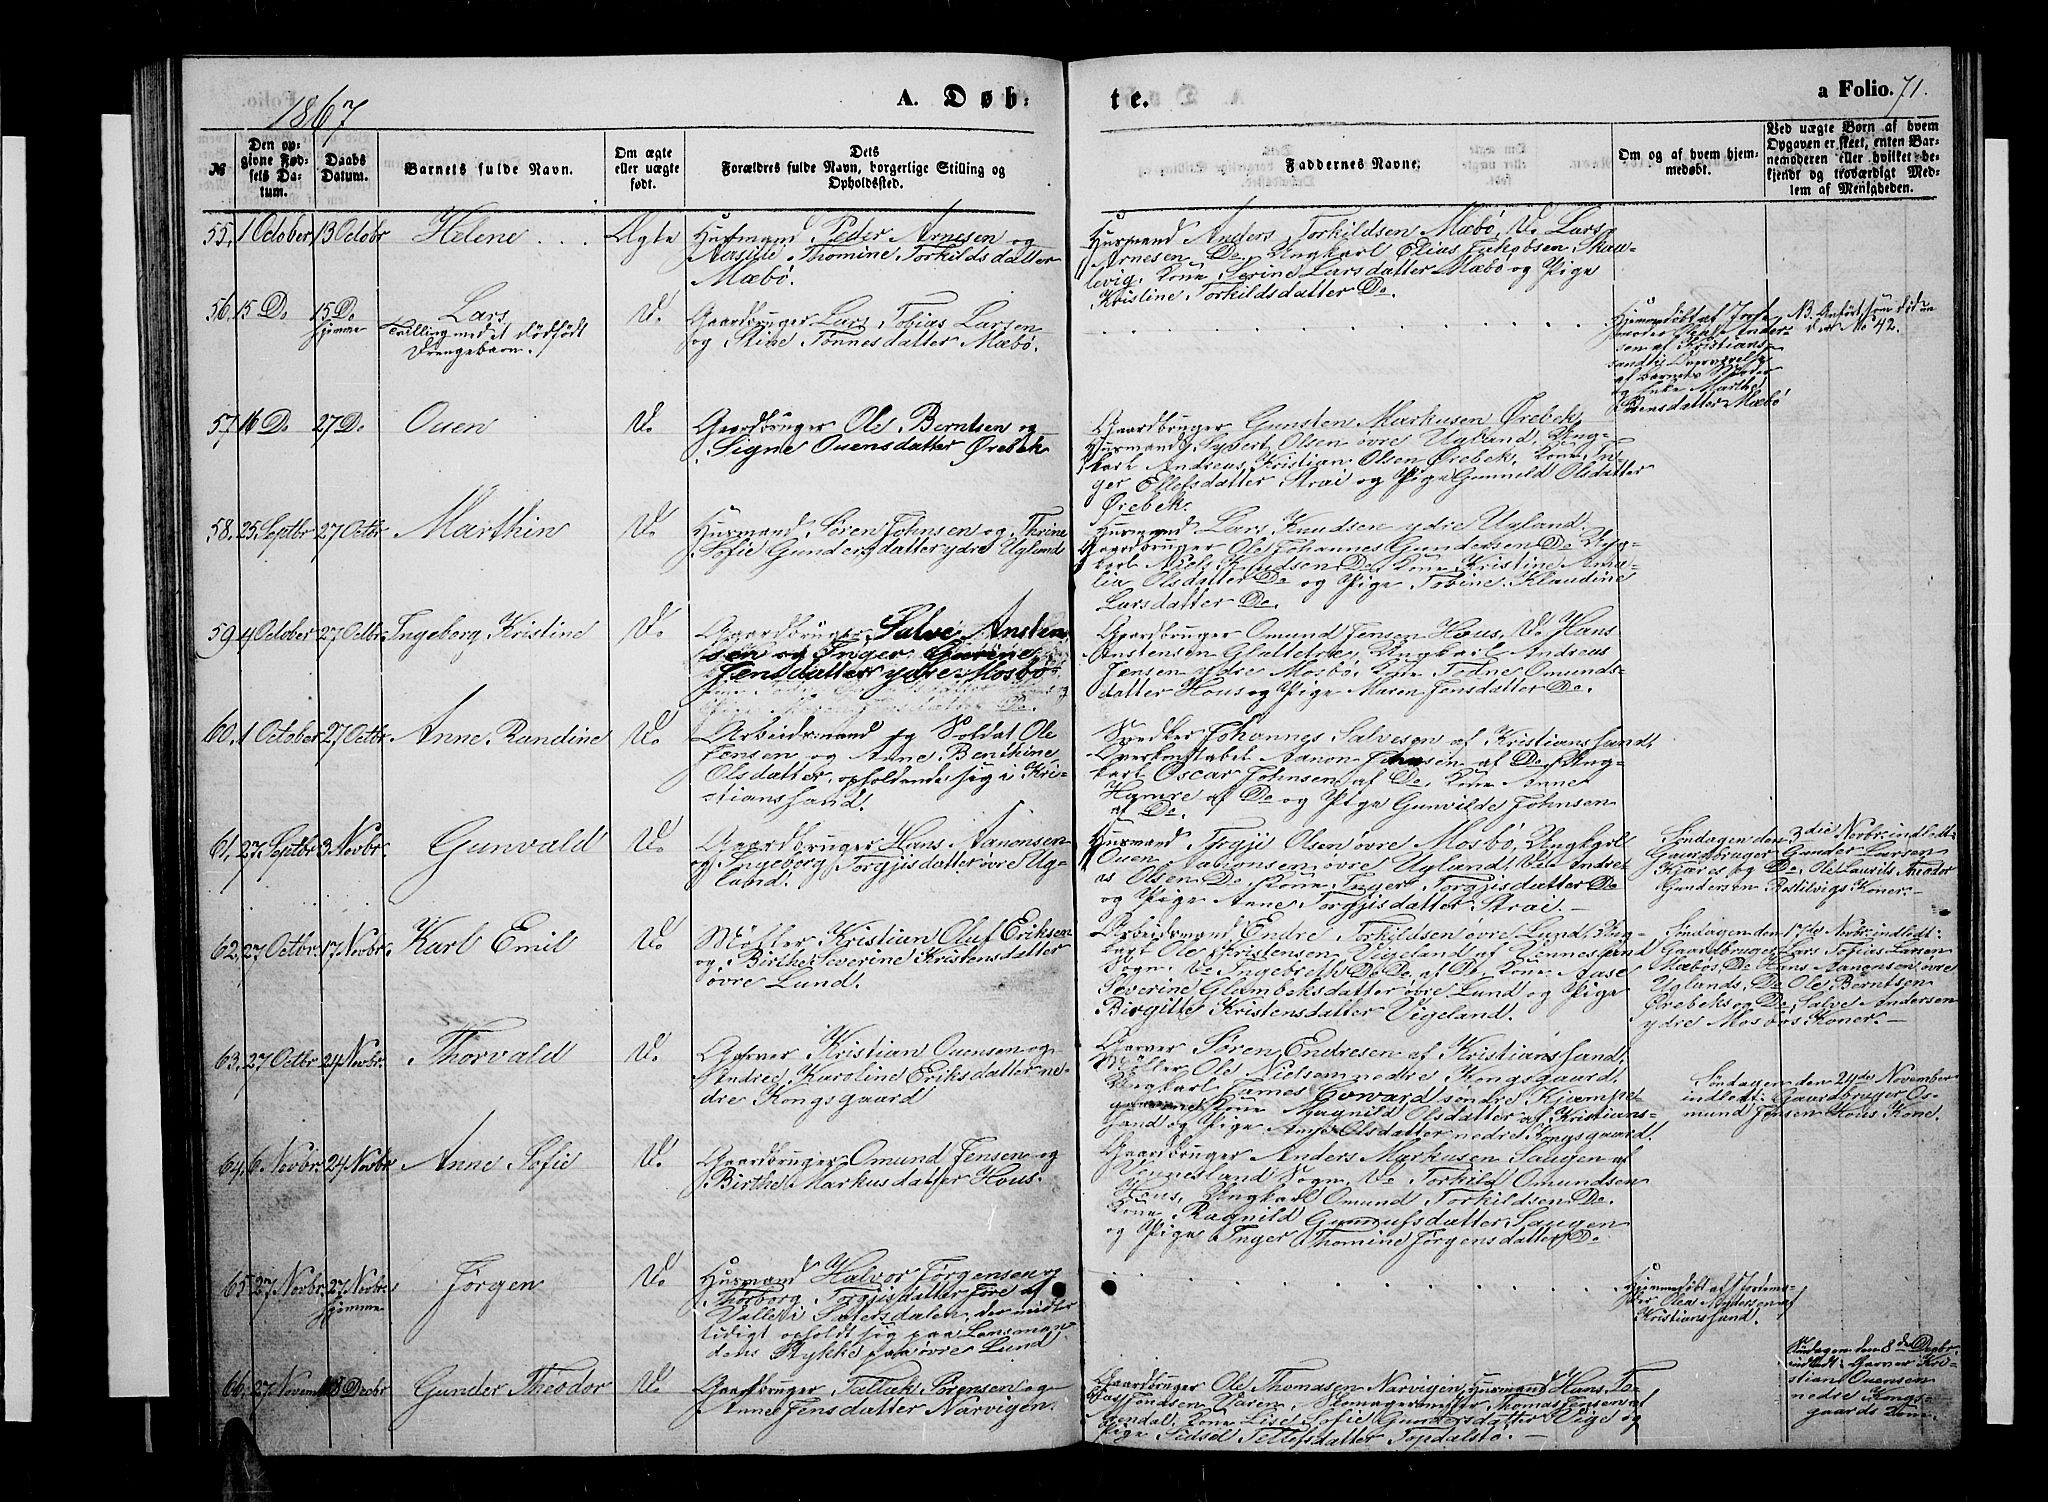 1867
A. Døb-
te.
a Folio. 71.
№
Den op-
givne Fød-
sels Da-
tum.
Daabs
Datum.
Barnets fulde Navn.
Om ægte
eller uægte
født.
Dets
Forældres fulde Navn, borgerlige Stilling og
Opholdssted.
Faddernes Navne.
Om og af hvem hjem-
medøbt.
Ved uægte Børn af hvem
Opgaven er skeet, enten Bar-
nemoderen eller hvilket be-
kjendt og troværdigt Med-
lem af Menigheden.
55. 1 October 13 Octobr Helene Ægte
Husmand Peder Arnesen og
Aasille Thomine Torkildsdatter
Mæbø.
Husmand Anders Torkildsen Mæbø, Do Lars
Arnesen Do, Ungkarl Elias Jakobsen Skau-
levig, Kone Serine Larsdatter Mæbø og Pige
Kristine Torkildsdatter Do
56. 15 Do 15 Do
hjemme
Lars
Tvilling med et dødfødt
Drengebarn.
Do
Gaardbruger Lars Tobias Larsen
og Stine Tønnesdatter Mæbø.
Hjemmedøbt af Jorde-
moder Olea Anders-
sen af Kristians-
sand i Overværelse
af Barnets Fader
og Enke Marthe
datter Mæbø
NB. Anført som død un-
der No 42.
57. 16 Do 27 Do Ouen Do
Gaardbruger Ole Berntsen og
Signe Ouensdatter Ørebek
Gaardbruger Gunsten Markusen Ørebek,
Husmand Syvert Olsen øvre Ugland, Ung-
karl Andreas Kristian Olsen Ørebek, Kone In-
ger Ellefsdatter Strai og Pige Gunnild Olsdatter
Ørebek.
58. 25 Septbr 27 Octbr Marthin Do
Husmand Søren Johnsen og Thrine
Sofie Gundersdatter ydre Ugland
Husmand Lars Knudsen ydre Ugland.
Gaardbruger Ole Johannes Gundersen Do Ung-
karl Niels Knudsen Do, Kone Kristine Ama-
lia Olsdatter Do og Pige Tobine Klaudine
Larsdatter Do.
59. 4 October 27 Octbr. Ingeborg Kristine Do
Gaardbruger Salve Ansten-
sen og Inger Gurine
Jensdatter ydre Mosbø
Gaardbruger Omund Jensen Hous, Do Hans
Anstensen Glattetræ, Ungkarl Andreas
Jensen ydre Mosbø, Kone Todne Omunds-
datter Hous og Pige Maren Jensdatter Do.
60. 1 October 27 Octbr. Anne Randine Do
Arbeidsmand og Soldat Ole
Jensen og Anne Benthine
Olsdatter opholdende sig i Kri-
stianssand.
Snedker Johannes Salvesen af Kristianssand,
Overkonstabel Aanon Johnsen af Do, Ung-
karl Oscar Johnsen af Do, Kone Anne
Hamre af Do og Pige Gunvilde Johnsen
af Do.
61. 27 Septbr 3 Novbr. Gunvald Do
Gaardbruger Hans Aanonsen
og Ingeborg Torgjisdatter øvre Ug-
land.
Husmand Torgji Olsen øvre Mosbø, Ungkarl
Ouen Aanonsen øvre Ugland, Do Andre-
as Olsen Do Kone Inger Torgjisdatter Do
og Pige Anne Torgjisdatter Strai.
Søndagen den 3die Novbr. indledt.
Gaardbruger Gunder Larsen
Kjærs og Do Ole Laurits Theodor
Gundersen Rostilvigs Koner.
62. 27 Octbr. 17 Novbr. Karl Emil Do
Møller Kristian Oluf Eriksen
og Birthe Severine Kristensdatter
øvre Lund.
Arbeidsmand Endre Torkildsen øvre Lund, Ung-
karl Ole Kristensen Vigeland af Vennesland
Sogn. Do Ingebreth Do Do af Do, Kone Aase
Severine Glambeksdatter øvre Lund og Pige
Birgitte Kristensdatter Vigeland.
Søndagen den 17de Novbr. indledt:
Gaardbruger Lars Tobias Larsen
Mæbøs, Do Hans Aanonsen øvre
Uglands, Do Ole Berntsen
Ørebeks og Do Salve Andersen
ydre Mosbøs Koner.
63. 27 Octbr 24 Novbr. Thorvald Do
Garver Kristian Ouensen og
Andree Karoline Eriksdatter ne-
dre Kongsgaard
Garver Søren Endresen af Kristianssand,
Møller Ole Nielsen nedre Kongsgaard,
Ungkarl James Coward søndre Kjømpe-
Kone Magnild Olsdatter af Kristians-
sand og Pige Anne Olsdatter nedre Kongsgaard.
Søndagen den 24de November
indledt: Gaardbruger Os-
mund Jensen Hous Kone.
64. 6 Novbr. 24 Novbr Anne Sofie Do
Gaardbruger Omund Jensen og
Birthe Markusdatter Hous.
Gaardbruger Anders Markusen Saugen af
Vennesland Sogn. Do Torkild Omundsen
Hous, Ungkarl Omund Torkildsen Do.
Kone Ragnild Gunnufsdatter Saugen
og Pige Inger Thomine Jørgensdatter Do
65. 27 Novbr. 27 Novbr.
hjemme
Jørgen Do
Husmand Halvor Jørgensen og
Thorborg Torgjisdatter Føre af
Valle i Sætersdalen, der midler-
tidigt opholdt sig paa Lensman-
dens Stykke paa øvre Lund
Hjemmedøbt af Jordemo-
der Olea Anderssen af
Kristianssand.
66. 27 Novem 8 Decbr Gunder Theodor Do
Gaardbruger Tallak Sørensen og
Anne Jensdatter Narvigen.
Gaardbruger Ole Thomasen Narvigen, Husmand Hans Te-
Vaaren, Skomagermester Thomas Jensen af
Arendal, Kone Lise Sofie Gundersdatter Vige og
Pige Sidsel Tellefsdatter Topdalsbø.
Søndagen den 8de Decbr.
indledt: Garver Kri-
stian Ouensen
nedre Kongs-
gaards Kone.